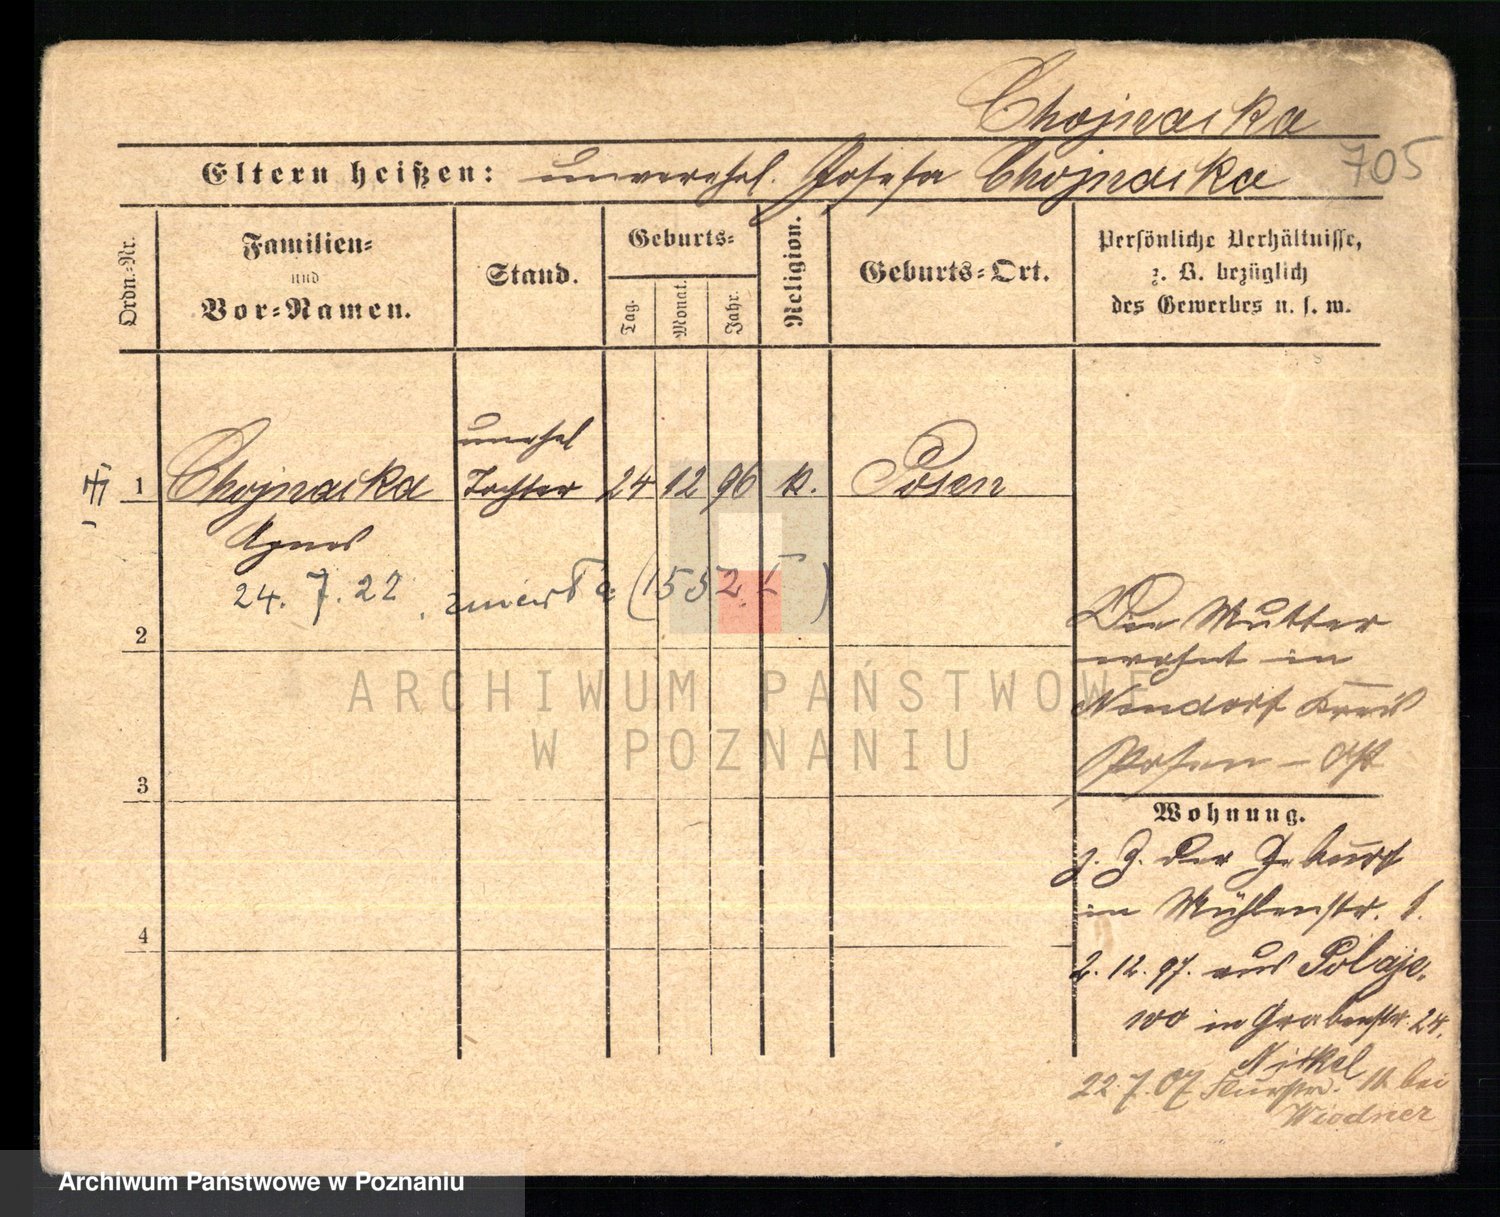 Chojnacka
705
Eltern heißen: unverehel. Josefa Chojnacka
Ordn.-Nr.
Familien-
und
Vor-Namen.
Stand.
Geburts-
Tag.
Monat.
Jahr.
Religion.
Geburts-Ort.
Persönliche Verhältnisse,
z. B. bezüglich
des Gewerbes u. s. w.
unehel
1 Chojnacka Tochter 24 12 96 k. Posen
Agnes
24. 7. 22. zmarła (1532.)
2
3
4
Die Mutter
wohnt in
Kreis
Posen - Ost
Wohnung.
z. Z. der Geburt
in Mühlenstr.
2. 12. 97. aus Polaje-
wo in Grabenstr. 24.
Nikel
22.7.07 bei
ARCHIWUM PAŃSTWOWE
W POZNANIU
Archiwum Państwowe w Poznaniu